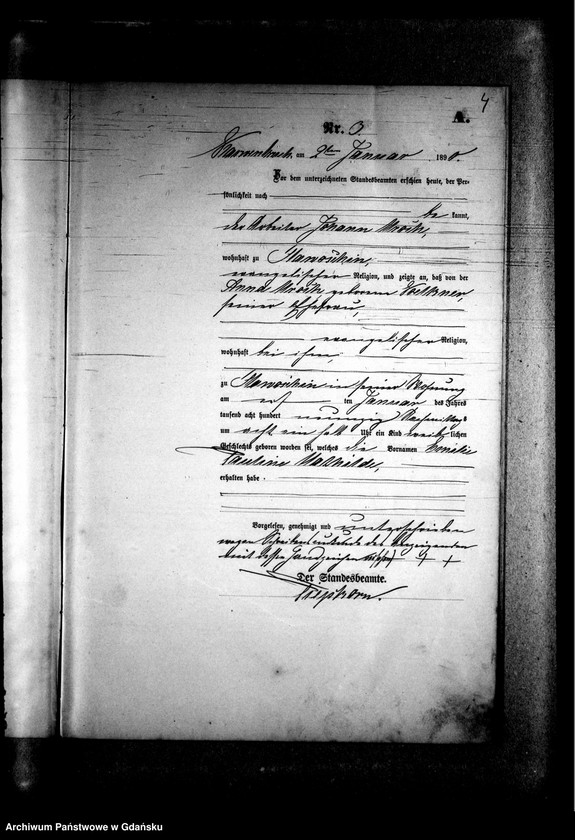 4
A.
Nr. 3.
am 2ten Januar 1890.
Vor dem unterzeichneten Standesbeamten erschien heute, der Per-
sönlichkeit nach
be kannt,
der Arbeiter Johann
wohnhaft zu
evangelischer Religion, und zeigte an, daß von der
Anna geborenen
seiner Ehefrau,
evangelischer Religion,
wohnhaft bei ihm,
zu in seiner Wohnung
am ten Januar des Jahres
tausend acht hundert neunzig Nachmittags
um acht ein halb Uhr ein Kind weib lichen
Geschlechts geboren worden sei, welches die Vornamen
Pauline Mathilde,
erhalten habe.
Vorgelesen, genehmigt und unterschrieben
wegen des Anzeigenden
mit dessen Handzeichen versehen + + +
Der Standesbeamte.
Archiwum Państwowe w Gdańsku